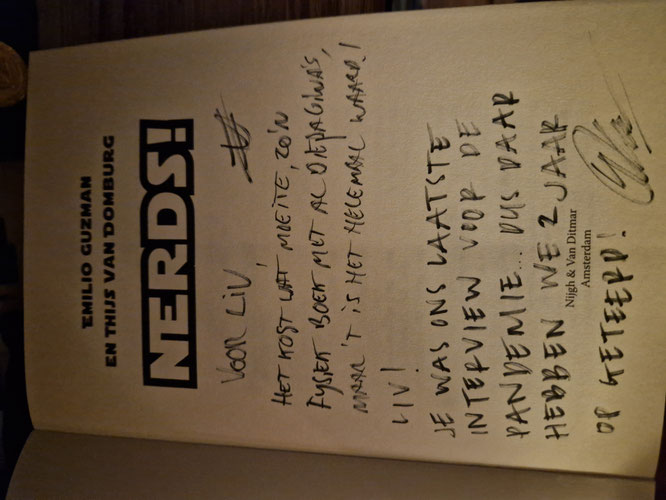 EMILIO GUZMAN
EN THIJS VAN DOMBURG
NERDS!
VOOR LIV!
HET KOST WAT MOEITE, ZO'N
FYSIEK BOEK MET AL DIE PAGINA'S,
MAAR 'T IS HET HELEMAAL WAARD!
LIV!
JE WAS ONS LAATSTE
INTERVIEW VOOR DE
PANDEMIE... DUS DAAR
HEBBEN WE 2 JAAR
OP GETEERD!
Nijgh & Van Ditmar
Amsterdam